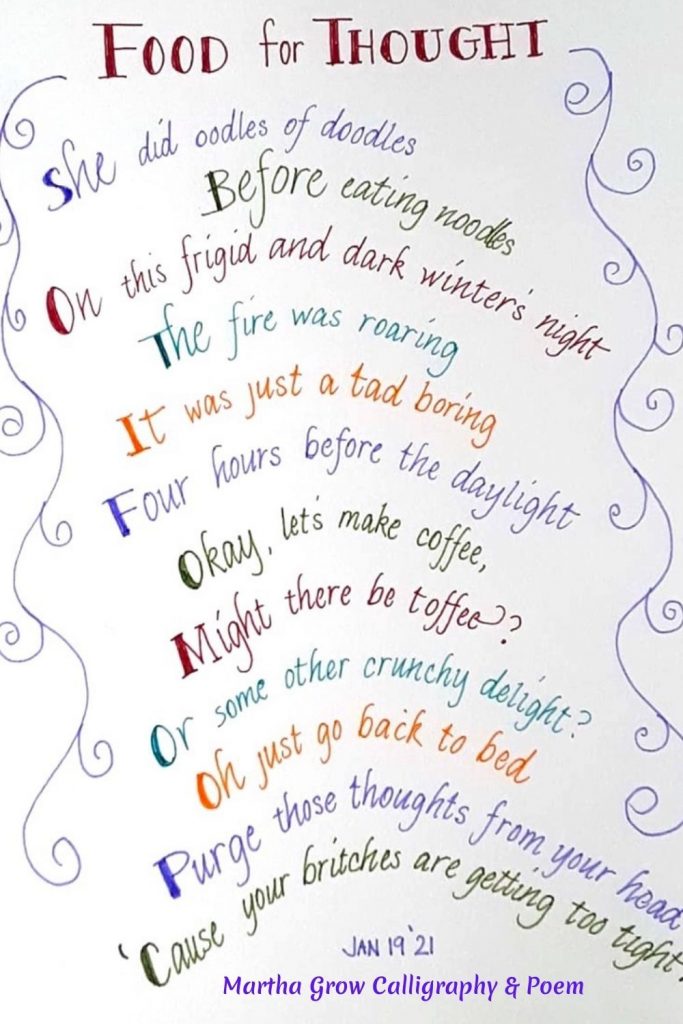 FOOD for THOUGHT
She did oodles of doodles
Before eating noodles
On this frigid and dark winter's night
The fire was roaring
It was just a tad boring
Four hours before the daylight
Okay, let's make coffee,
Might there be toffee?
Or some other crunchy delight?
Oh just go back to bed
Purge those thoughts from your head
'Cause your britches are getting too tight!
JAN 19 '21
Martha Grow Calligraphy & Poem